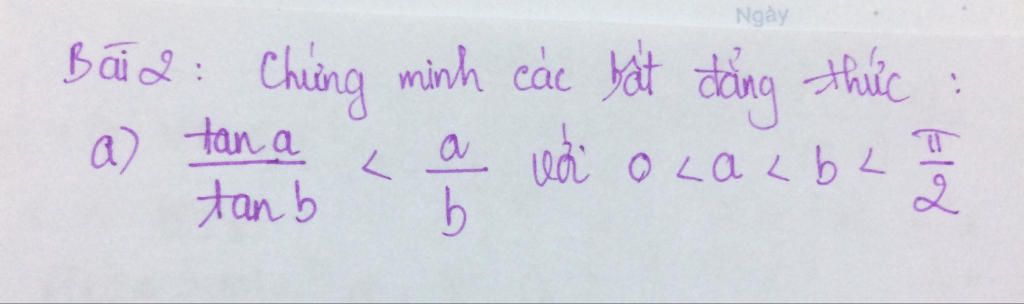 Ngày
Bài 2 : Chứng minh các bất đẳng thức :
a) tan a / tan b < a / b với 0 < a < b < π / 2